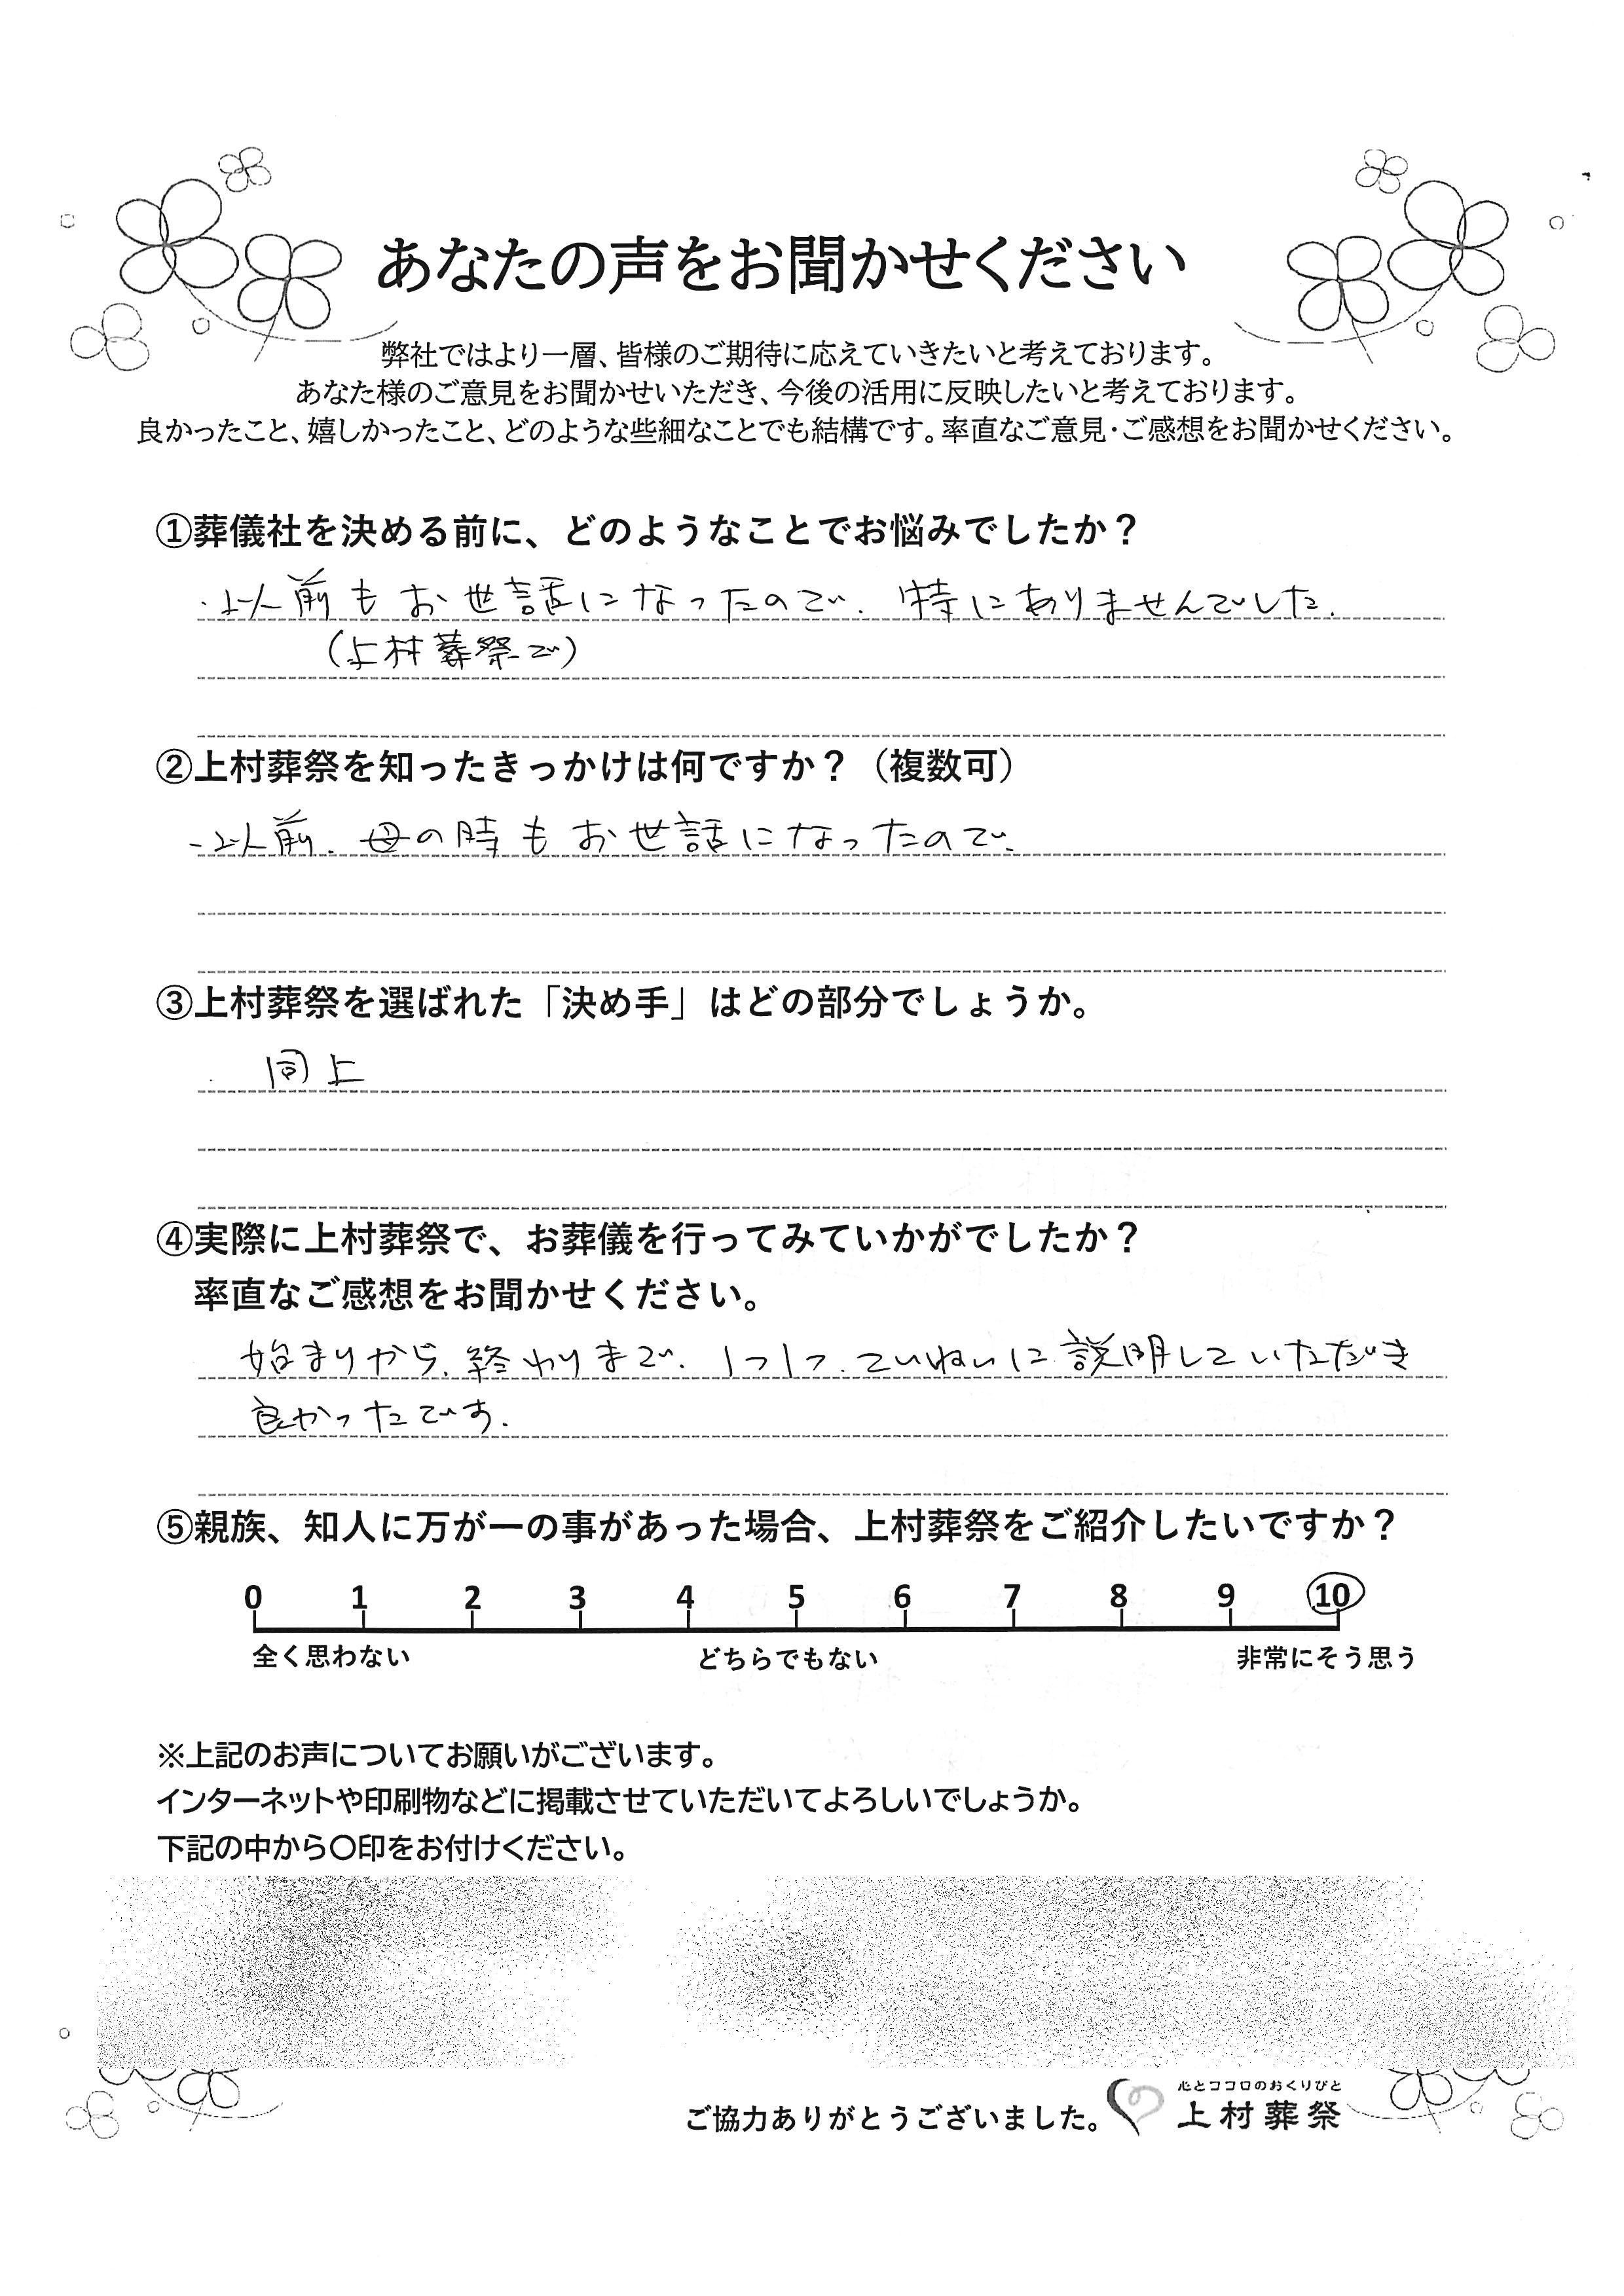 あなたの声をお聞かせください
弊社ではより一層、皆様のご期待に応えていきたいと考えております。
あなた様のご意見をお聞かせいただき、今後の活用に反映したいと考えております。
良かったこと、嬉しかったこと、どのような些細なことでも結構です。率直なご意見・ご感想をお聞かせください。
①葬儀社を決める前に、どのようなことでお悩みでしたか？
・以前もお世話になったので、特にありませんでした。
（上村葬祭で）
②上村葬祭を知ったきっかけは何ですか？（複数可）
・以前、母の時もお世話になったので、
③上村葬祭を選ばれた「決め手」はどの部分でしょうか。
・同上
④実際に上村葬祭で、お葬儀を行ってみていかがでしたか？
率直なご感想をお聞かせください。
始まりから、終わりまで、1つ1つ、ていねいに説明していただき
良かったです。
⑤親族、知人に万が一の事があった場合、上村葬祭をご紹介したいですか？
0 1 2 3 4 5 6 7 8 9 10
全く思わない どちらでもない 非常にそう思う
※上記のお声についてお願いがございます。
インターネットや印刷物などに掲載させていただいてよろしいでしょうか。
下記の中から〇印をお付けください。
心とココロのおくりびと
ご協力ありがとうございました。 上村葬祭